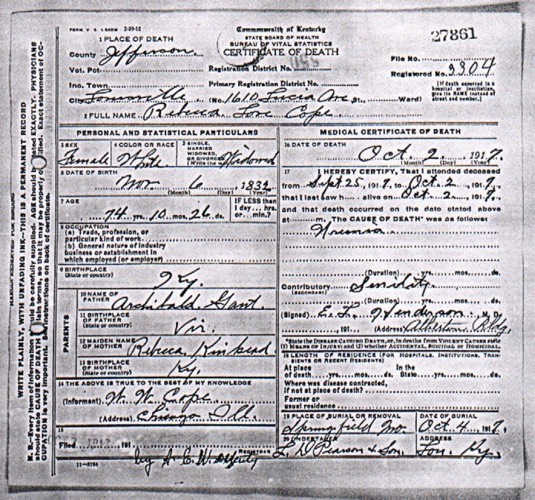 FORM V. S.
27861
1 PLACE OF DEATH
County Jefferson
Vot. Pct.
Inc. Town
City Louisville (No. 1610 Lucia Ave St., Ward)
Commonwealth of Kentucky
STATE BOARD OF HEALTH
BUREAU OF VITAL STATISTICS
CERTIFICATE OF DEATH
Registration District No.
Primary Registration District No.
File No.
Registered No. 3304
[If death occurred in a hospital or institution, give its NAME instead of street and number.]
2 FULL NAME Rebecca Love Cope
PERSONAL AND STATISTICAL PARTICULARS
3 SEX Female
4 COLOR OR RACE White
5 SINGLE, MARRIED, WIDOWED, OR DIVORCED (Write the word) Widowed
6 DATE OF BIRTH
Nov 6 1832
(Month) (Day) (Year)
7 AGE
74 yrs. 10 mos. 26 ds.
IF LESS than 1 day,... hrs. or... min.?
8 OCCUPATION
(a) Trade, profession, or particular kind of work
(b) General nature of industry business or establishment in which employed (or employer)
9 BIRTHPLACE (State or country) Ky.
PARENTS
10 NAME OF FATHER Archibald Gant
11 BIRTHPLACE OF FATHER (State or country) Vir.
12 MAIDEN NAME OF MOTHER Rebecca Kinkead
13 BIRTHPLACE OF MOTHER (State or country) Ky.
14 THE ABOVE IS TRUE TO THE BEST OF MY KNOWLEDGE
(Informant) W. W. Cope
(Address) Chicago Ill.
15
Filed 191
by A. C. W. Deputy
REGISTRAR
MEDICAL CERTIFICATE OF DEATH
16 DATE OF DEATH
Oct. 2, 1917
(Month) (Day) (Year)
17 I HEREBY CERTIFY, That I attended deceased
from Sept 25, 1917, to Oct 2, 1917,
that I last saw h alive on Oct 2, 1917,
and that death occurred on the date stated above
at m. The CAUSE OF DEATH* was as follows:
(Duration) yrs. mos. ds.
Contributory Senility
(SECONDARY)
(Duration) yrs. mos. ds.
(Signed) Henderson, M. D.
191 (Address) Atherton Bldg
*State the DISEASE CAUSING DEATH, or, in deaths from VIOLENT CAUSES state (1) MEANS OF INJURY; and (2) whether ACCIDENTAL, SUICIDAL or HOMICIDAL.
18 LENGTH OF RESIDENCE (FOR HOSPITALS, INSTITUTIONS, TRANSIENTS OR RECENT RESIDENTS)
At place of death yrs. mos. ds. In the State yrs. mos. ds.
Where was disease contracted, if not at place of death?
Former or usual residence
19 PLACE OF BURIAL OR REMOVAL Springfield Mo.
DATE OF BURIAL Oct 4, 1917
20 UNDERTAKER L. D. Pearson & Son.
ADDRESS Lou. Ky.
WRITE PLAINLY, WITH UNFADING INK—THIS IS A PERMANENT RECORD